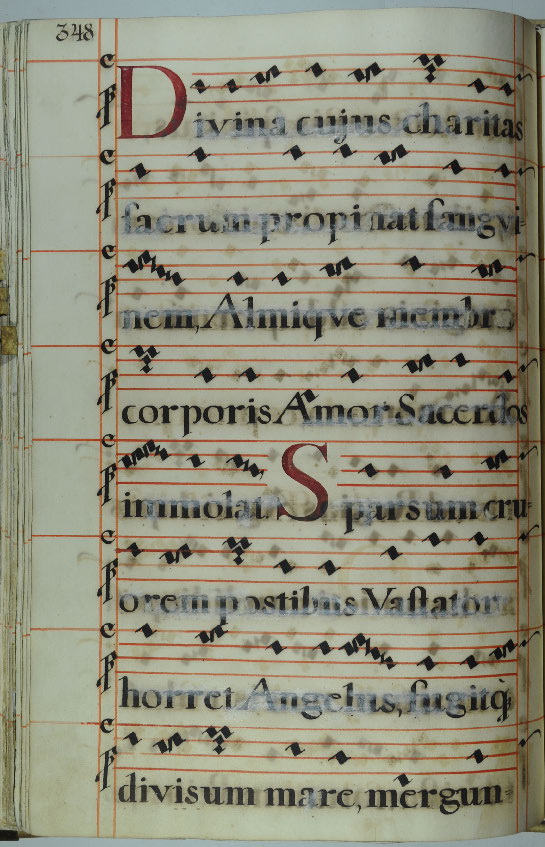 348
Divina cujus charitas
sacrum propinat sangvi-
nem, Almiqve membra
corporis Amor Sacerdos
immolat. Sparsum cru-
orem postibus Vastator
horret Angelus, fugitq́;
divisum mare, mergun-